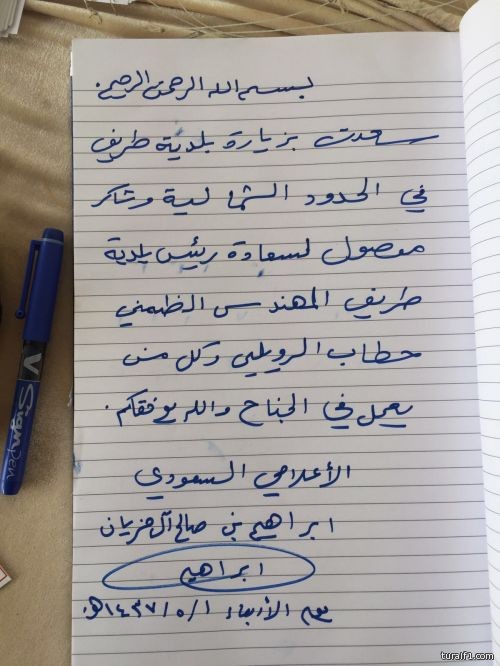 بسم الله الرحمن الرحيم.
سعدت بزيارة بلدية طريف
في الحدود الشمالية وشاكر
لسعادة رئيس بلدية
طريف المهندس
حطاب الرويلي وكل من
يعمل في الجناح والله يوفقكم.
الأعلامي السعودي
ابراهيم بن صالح آل
ابراهيم
يوم الأربعاء ١/٥/١٤٣٧هـ
V Sign Pen
turaif1.com